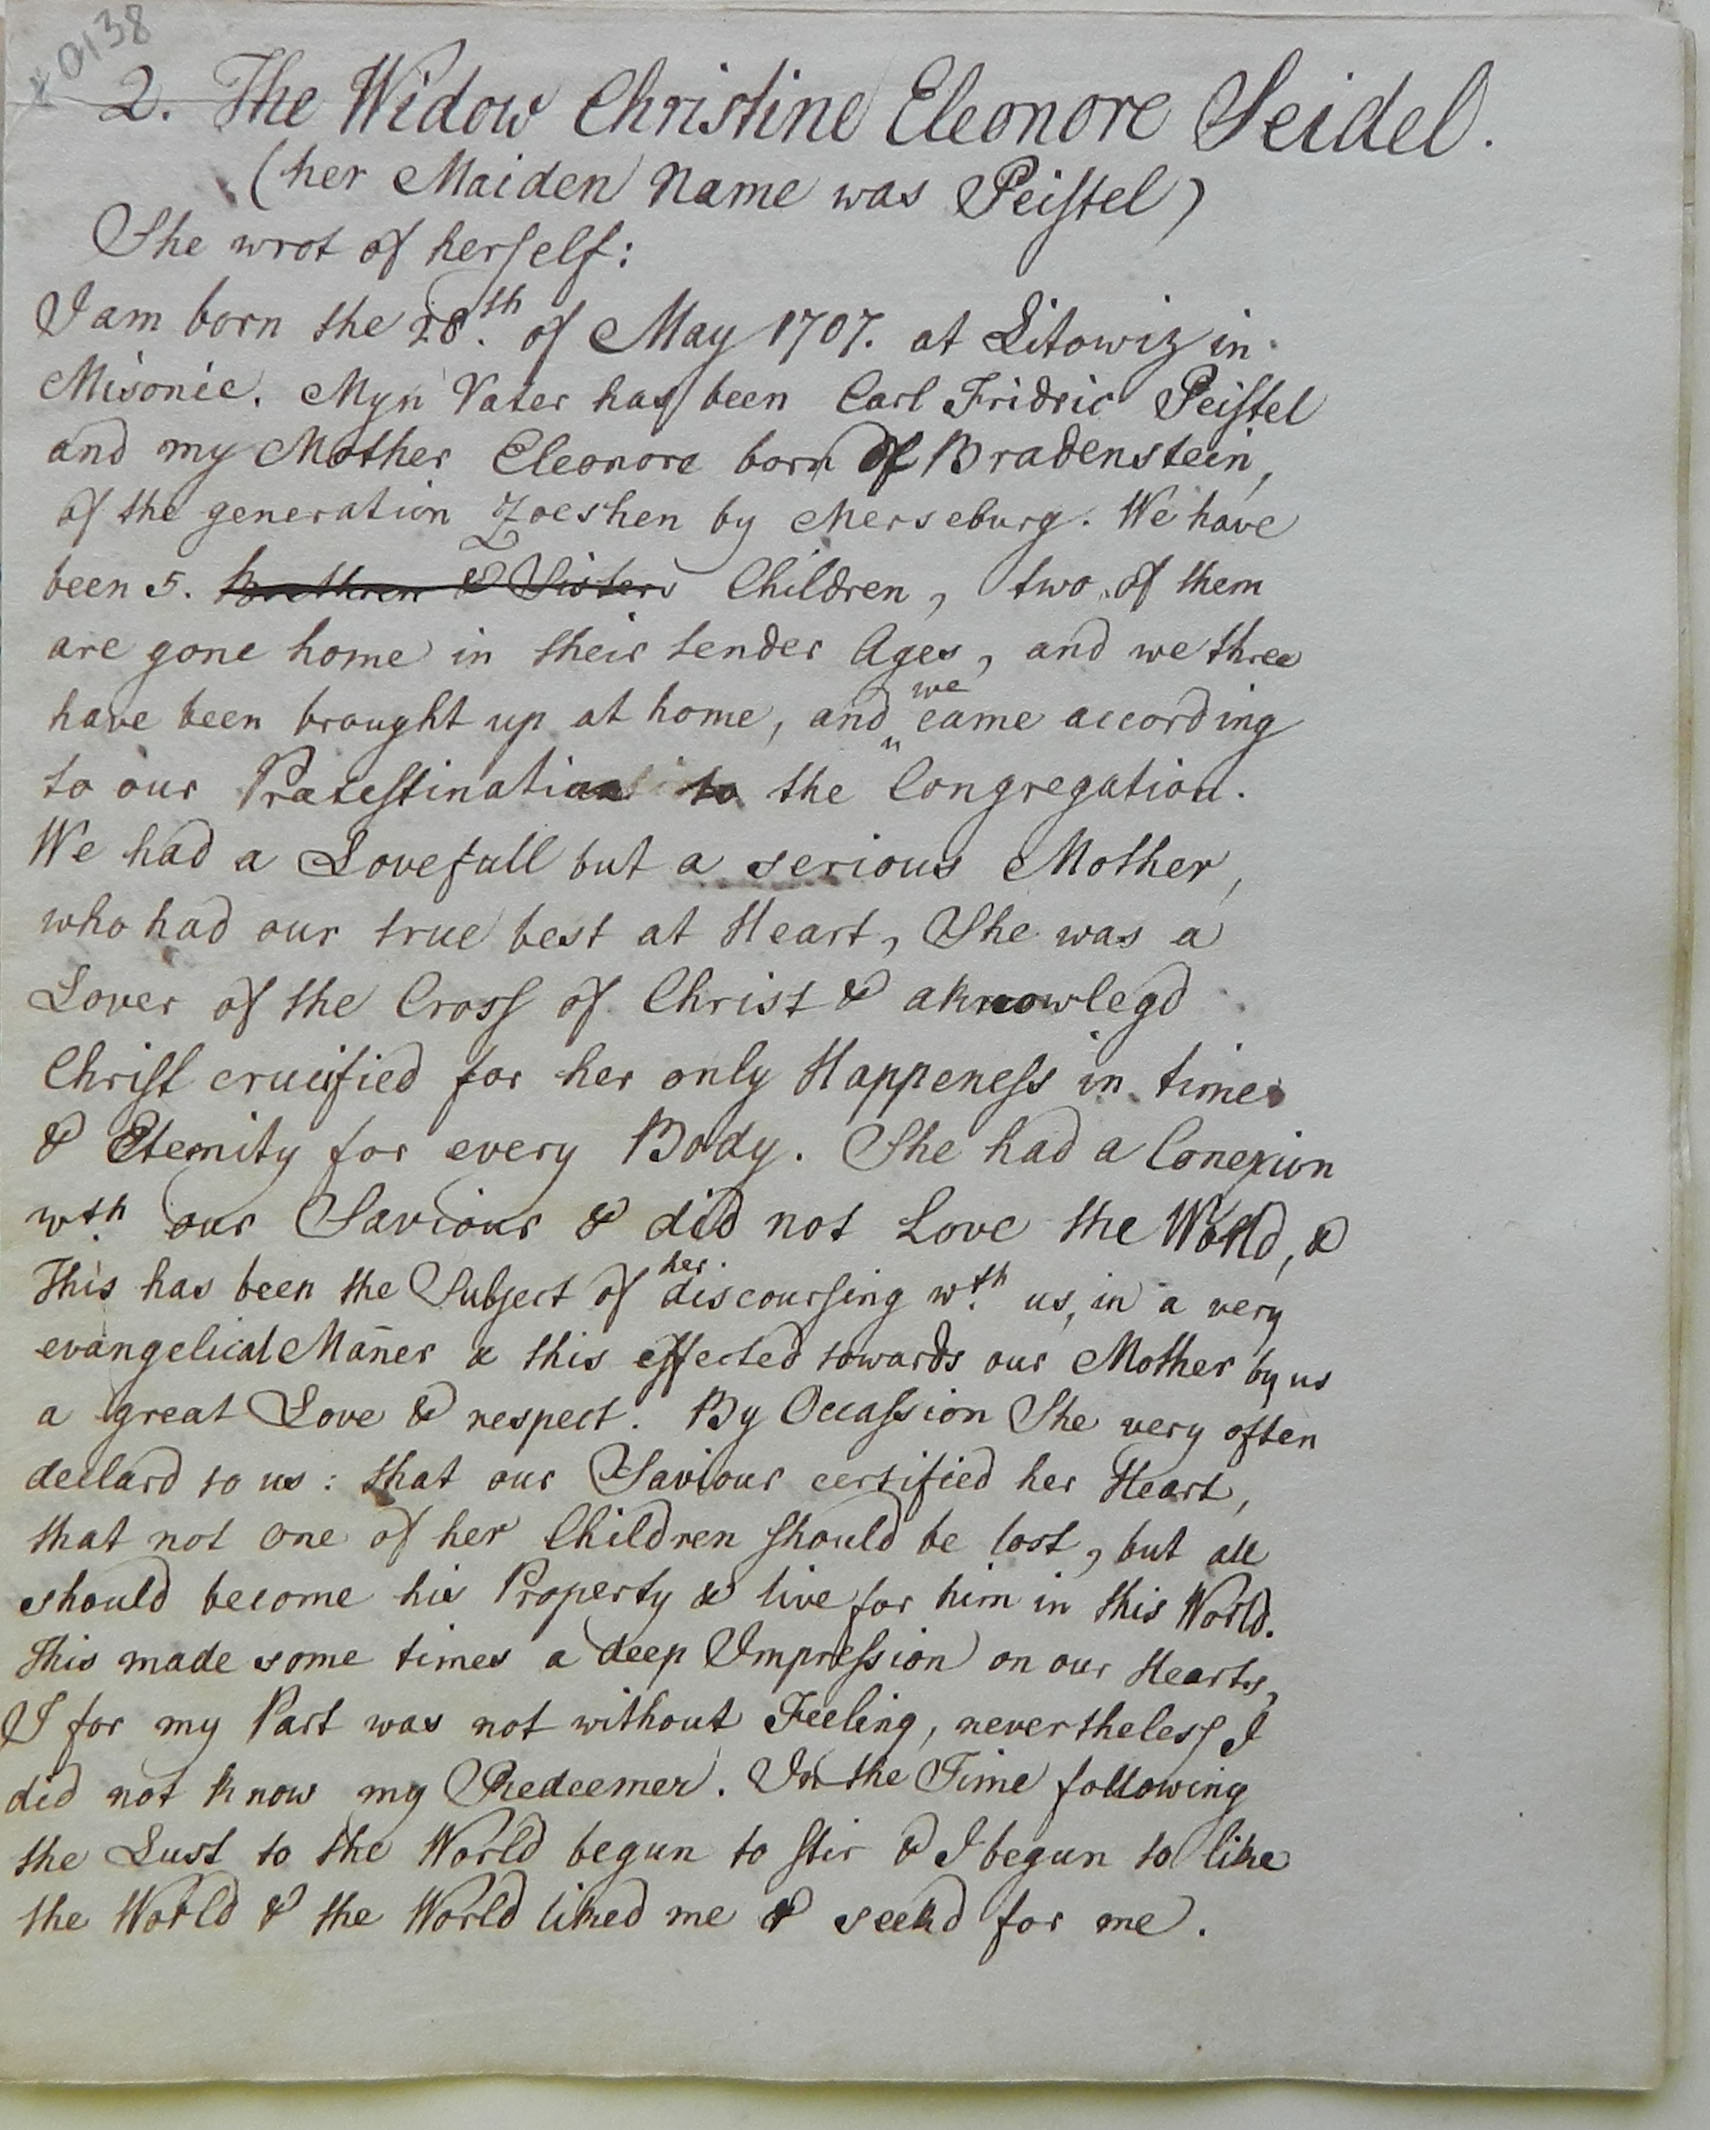 x a138
2. The Widow Christine Eleonore Seidel.
(her Maiden Name was Peistel)
She wrot of herself:
I am born the 28th. of May 1707. at Litowiz in
Misonie. Myn Vater has been Carl Fridric Peistel
and my Mother Eleonore born of Bradenstein,
of the generation Zoeshen by Merseburg. We have
been 5. Brethren & Sisters Children, two of them
are gone home in their tender Ages, and we three
have been brought up at home, and we came according
to our Pratestination to the Congregation.
We had a Lovefull but a serious Mother,
who had our true best at Heart, She was a
Lover of the Cross of Christ & aknowlegd
Christ crucified for her only Happeness in time
& Eternity for every Body. She had a Conexion
wth. our Saviour & did not Love the World, &
This has been the Subject of her discoursing wth. us, in a very
evangelical Man̄er & this effected towards our Mother by us
a great Love & respect. By Occassion She very often
declard to us: that our Saviour certified her Heart,
that not one of her Children should be lost, but all
should become his Property & live for him in this World.
This made some times a deep Impression on our Hearts,
I for my Part was not without Feeling, nevertheless I
did not know my Redeemer. In the Time following
the Lust to the World begun to stir & I begun to like
the World & the World liked me & seekd for me.